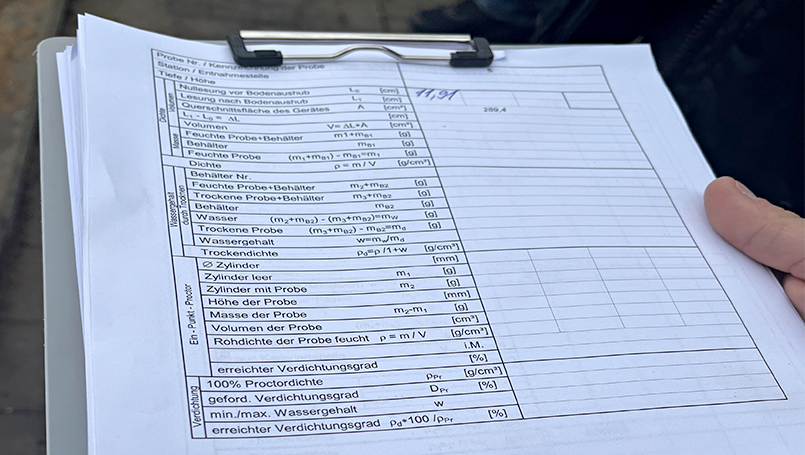 Probe Nr. / Kennzeichnung der Probe
Station / Entnahmestelle
Tiefe / Höhe
Dichte
Volumen
Nullesung vor Bodenaushub L₀ [cm] 11,91
Lesung nach Bodenaushub L₁ [cm]
Querschnittsfläche des Gerätes A [cm²] 289,4
L₁ - L₀ = ΔL [cm]
Volumen V= ΔL*A [cm³]
Masse
Feuchte Probe+Behälter m1+mB1 [g]
Behälter mB1 [g]
Feuchte Probe (m₁+mB1) - mB1=m₁ [g]
Dichte ρ = m / V [g/cm³]
Wassergehalt
durch Trocknen
Behälter Nr.
Feuchte Probe+Behälter m₂+mB2 [g]
Trockene Probe+Behälter m₃+mB2 [g]
Behälter mB2 [g]
Wasser (m₂+mB2) - (m₃+mB2)=mw [g]
Trockene Probe (m₃+mB2) - mB2=md [g]
Wassergehalt w=mw/md
Trockendichte ρd=ρ /1+w [g/cm³]
Ein - Punkt - Proctor
Ø Zylinder [mm]
Zylinder leer m₁ [g]
Zylinder mit Probe m₂ [g]
Höhe der Probe [mm]
Masse der Probe m₂-m₁ [g]
Volumen der Probe [cm³]
Rohdichte der Probe feucht ρ = m / V [g/cm³]
i.M.
erreichter Verdichtungsgrad [%]
Verdichtung
100% Proctordichte ρPr [g/cm³]
geford. Verdichtungsgrad DPr [%]
min./max. Wassergehalt w
erreichter Verdichtungsgrad ρd*100 /ρPr [%]